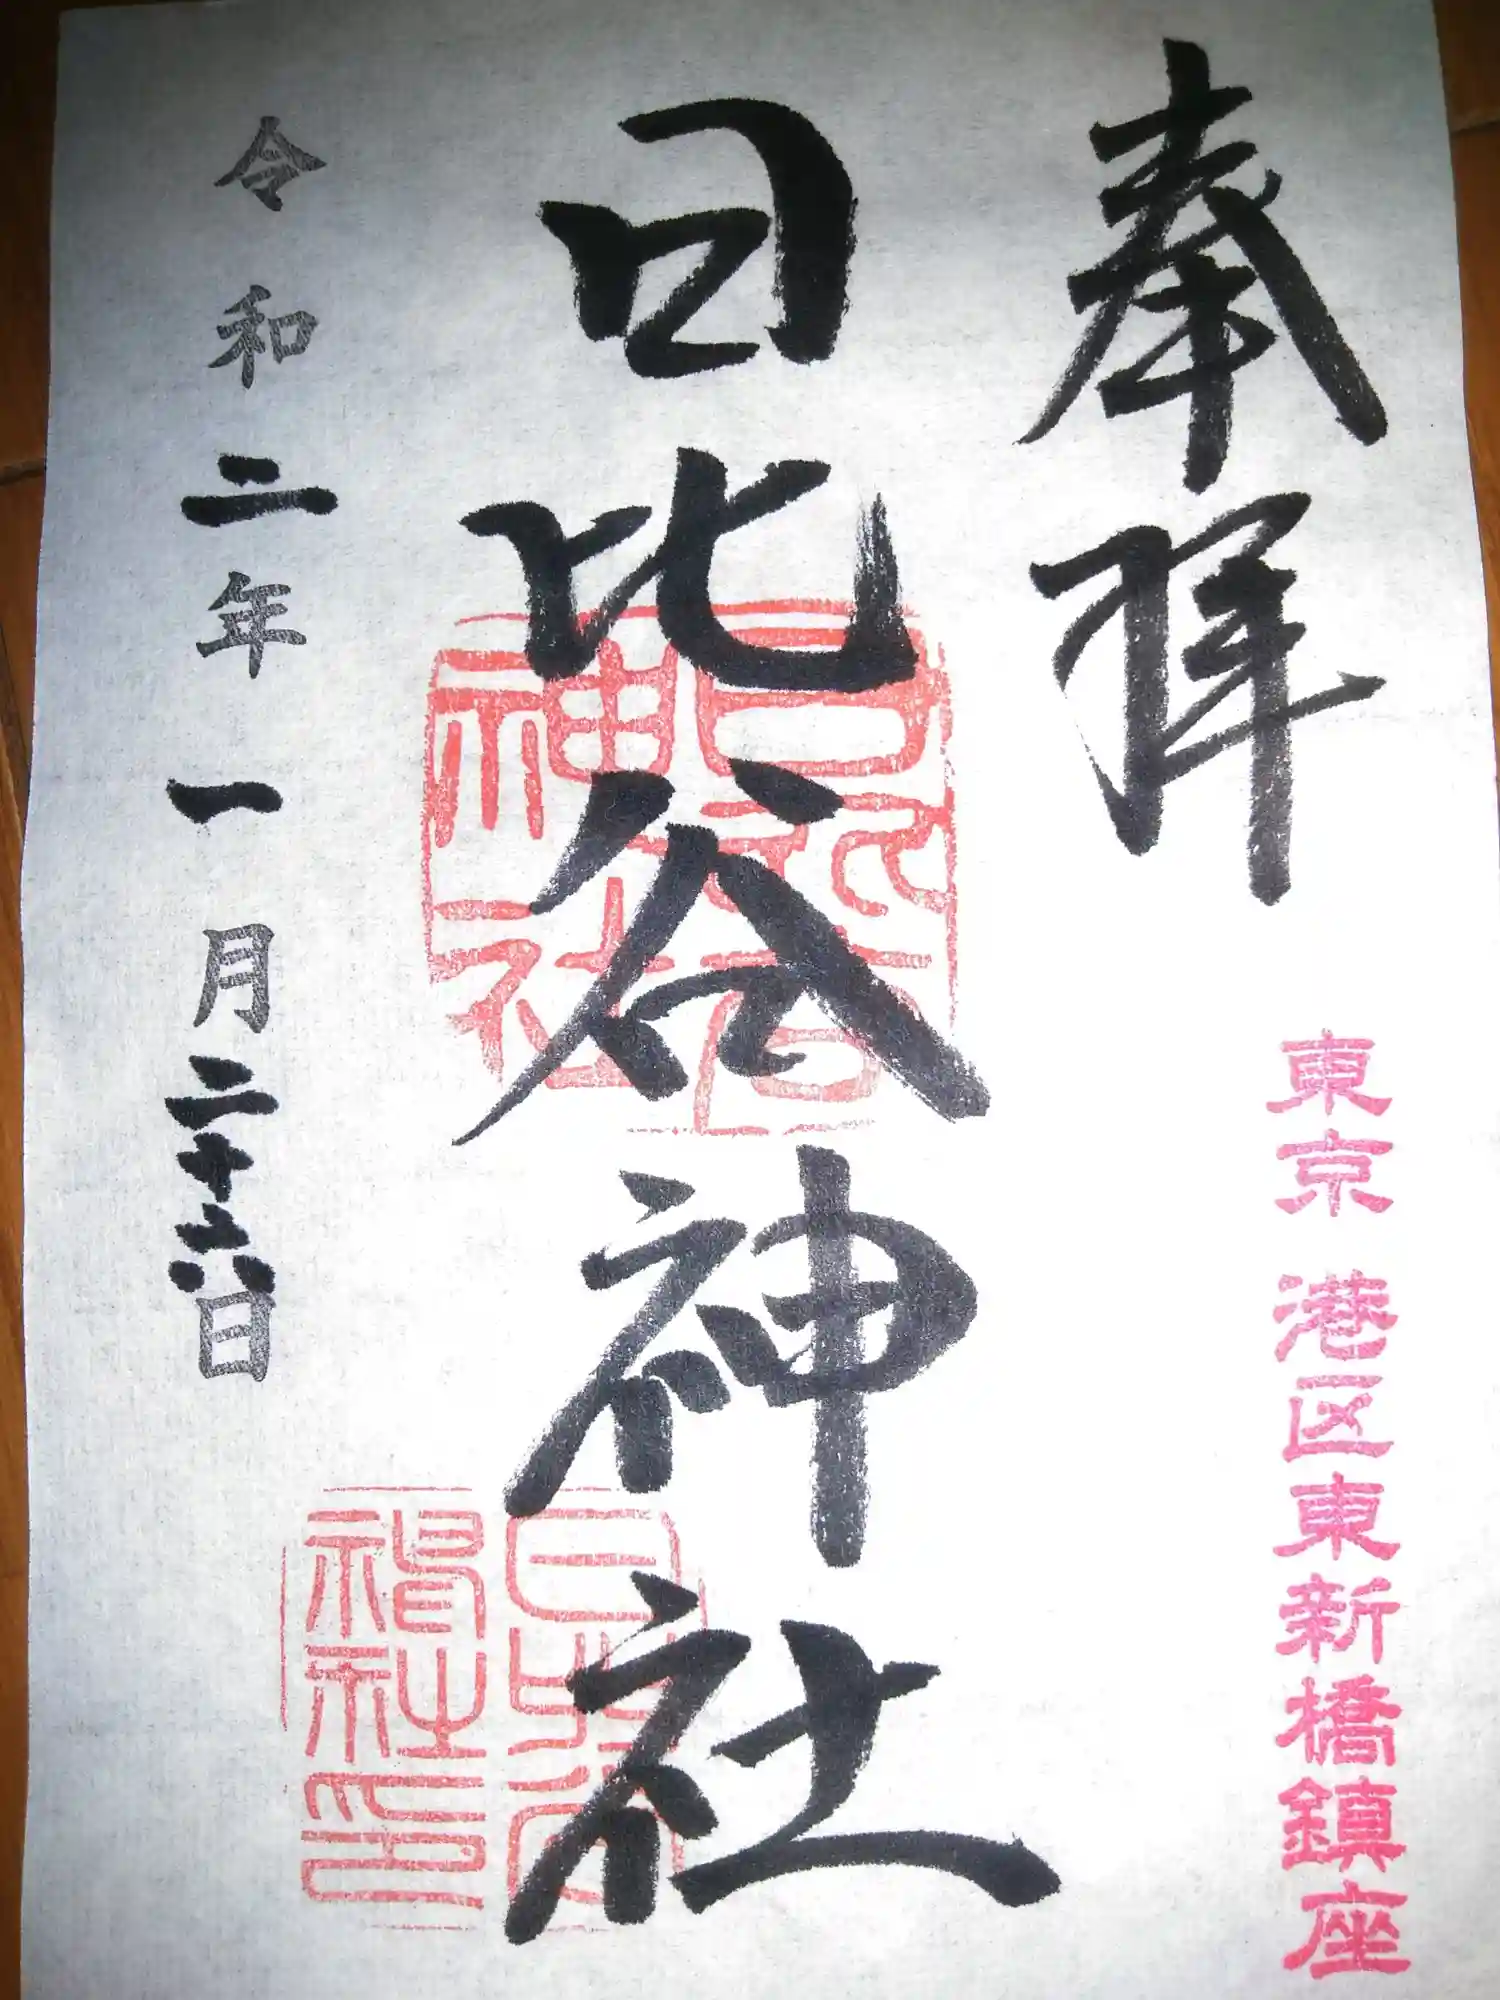 奉拝
東京 港区東新橋鎮座
日比谷神社
日比谷神社
日比谷神社印
令和二年一月二十六日